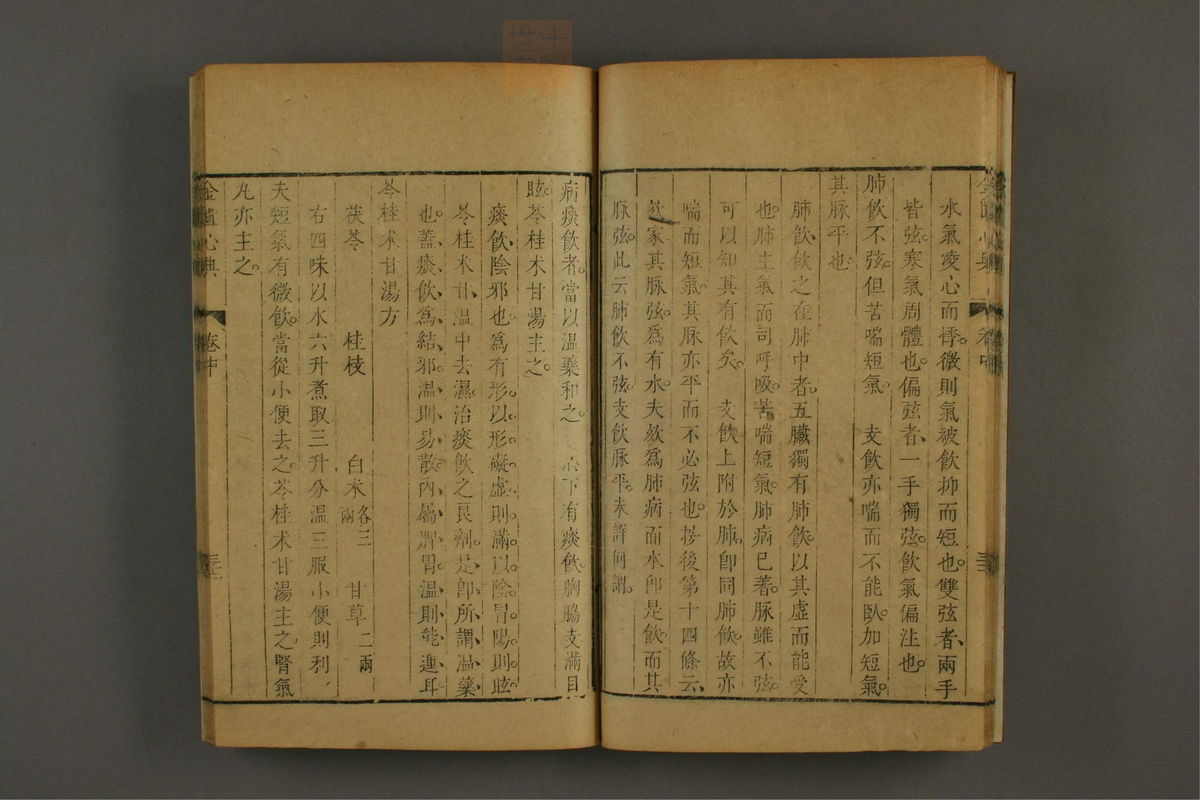 水氣凌心而悸。微則氣被飲抑而短也。雙弦者、兩手
皆弦。寒氣周體也。偏弦者、一手獨弦。飲氣偏注也。
肺飲不弦。但苦喘短氣。　支飲亦喘而不能臥。加短氣。
其脉平也。
肺飲、飲之在肺中者。五臟獨有肺飲。以其虛而能受
也。肺主氣而司呼吸。苦喘短氣。肺病已著。脉雖不弦。
可以知其有飲矣。　支飲上附於肺。卽同肺飲。故亦
喘而短氣。其脉亦平而不必弦也。按後第十四條云、
欬家其脉弦。爲有水。夫欬爲肺病。而水卽是飲。而其
脉弦。此云肺飲不弦。支飲脉平。未詳何謂。
病痰飲者。當以温藥和之。　心下有痰飲。胸脇支滿。目
眩。苓桂朮甘湯主之。
痰飲、陰邪也。爲有形。以形礙虛則滿。以陰冒陽則眩。
苓桂朮甘、温中去濕。治痰飲之良劑。是卽所謂温藥
也。蓋痰飲爲結邪。温則易散。內屬脾胃。温則能運耳
苓桂朮甘湯方
茯苓　桂枝　白朮各三兩　甘草二兩
右四味以水六升煮取三升分温三服小便則利、
夫短氣有微飲。當從小便去之。苓桂朮甘湯主之。腎氣
丸亦主之。
金匱心典　卷中